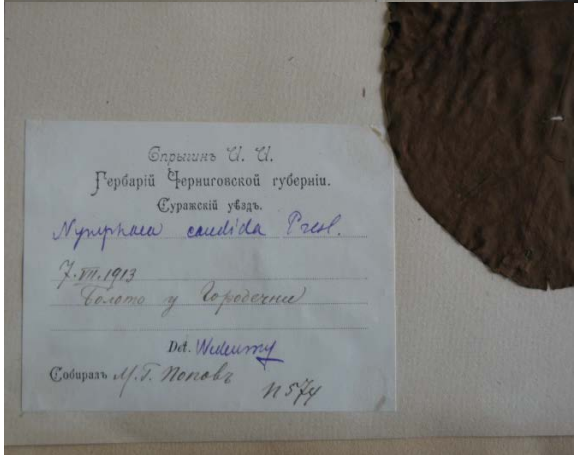 Спрыгинъ И. И.
Гербарій Черниговской губерніи.
Суражскій уѣздъ.
Nymphaea candida Presl.
7.VII.1913
Болото у Городечни
Det.
Собиралъ М.Г. Поповъ
N 574